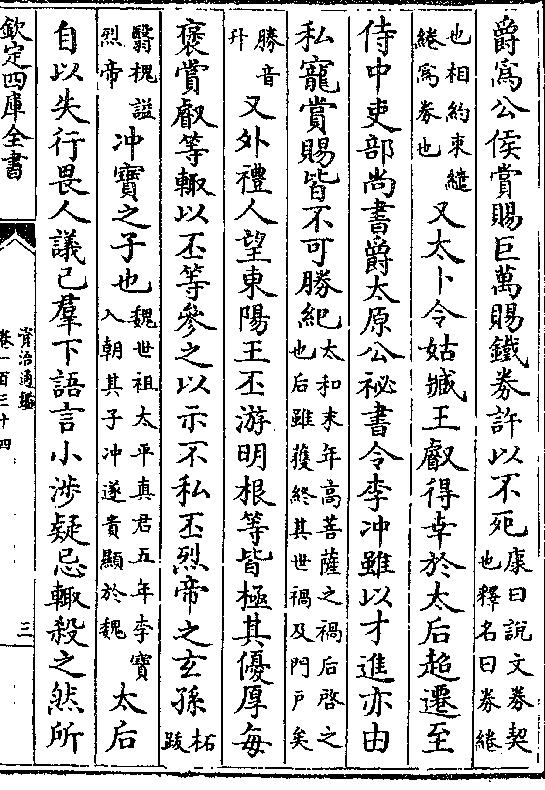 爵爲公侯賞賜巨萬賜鐵券許以不死康曰說文券契
也釋名曰券綣
也相約束繾
綣爲券也又太卜令姑臧王叡得幸於太后超遷至
侍中吏部尚書爵太原公祕書令李冲雖以才進亦由
私寵賞賜皆不可勝紀太和末年高菩薩之禍后啓之
也后雖獲終其世禍及門戶矣
勝音
升又外禮人望東陽王丕游明根等皆極其優厚每
褒賞叡等輙以丕等參之以示不私丕烈帝之玄孫拓
跋
翳槐謚
烈帝冲寶之子也魏世祖太平真君五年李寶
入朝其子冲遂貴顯於魏太后
自以失行畏人議己羣下語言小涉疑忌輙殺之然所
欽定四庫全書
資治通鑑
卷一百三十四
三